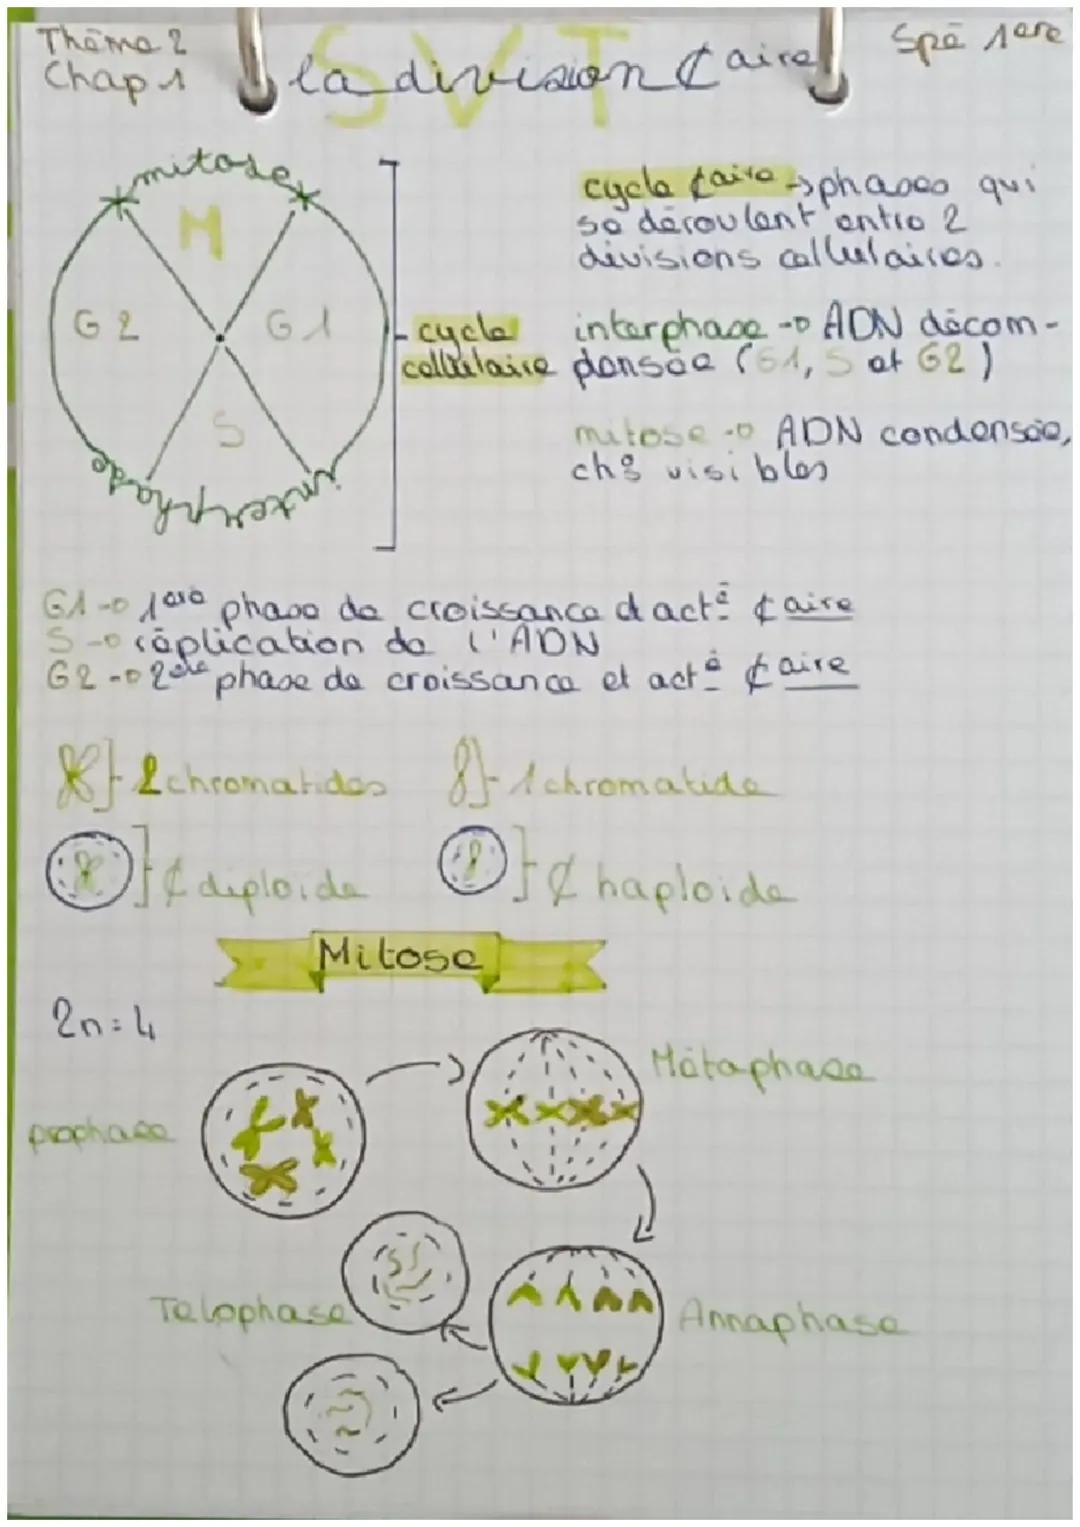 Thème 2
Chap 1
SVT
la division ¢aire
Spé 1ère
mitose
M
G2
G1
S
interphase
cycle
cellulaire
cycle ¢aire → phases qui
se déroulent entre 2
divisions cellulaires.
interphase → ADN décom-
pensée (G1, S et G2)
mitose → ADN condensée,
chs visibles
G1 → 1ère phase de croissance d acté ¢aire
S → réplication de l'ADN
G2 → 2ère phase de croissance et acté ¢aire
} 2 chromatides
} 1 chromatide
} ¢ diploïde
} ¢ haploïde
Mitose
2n = 4
prophase
Métaphase
Telophase
Annaphase